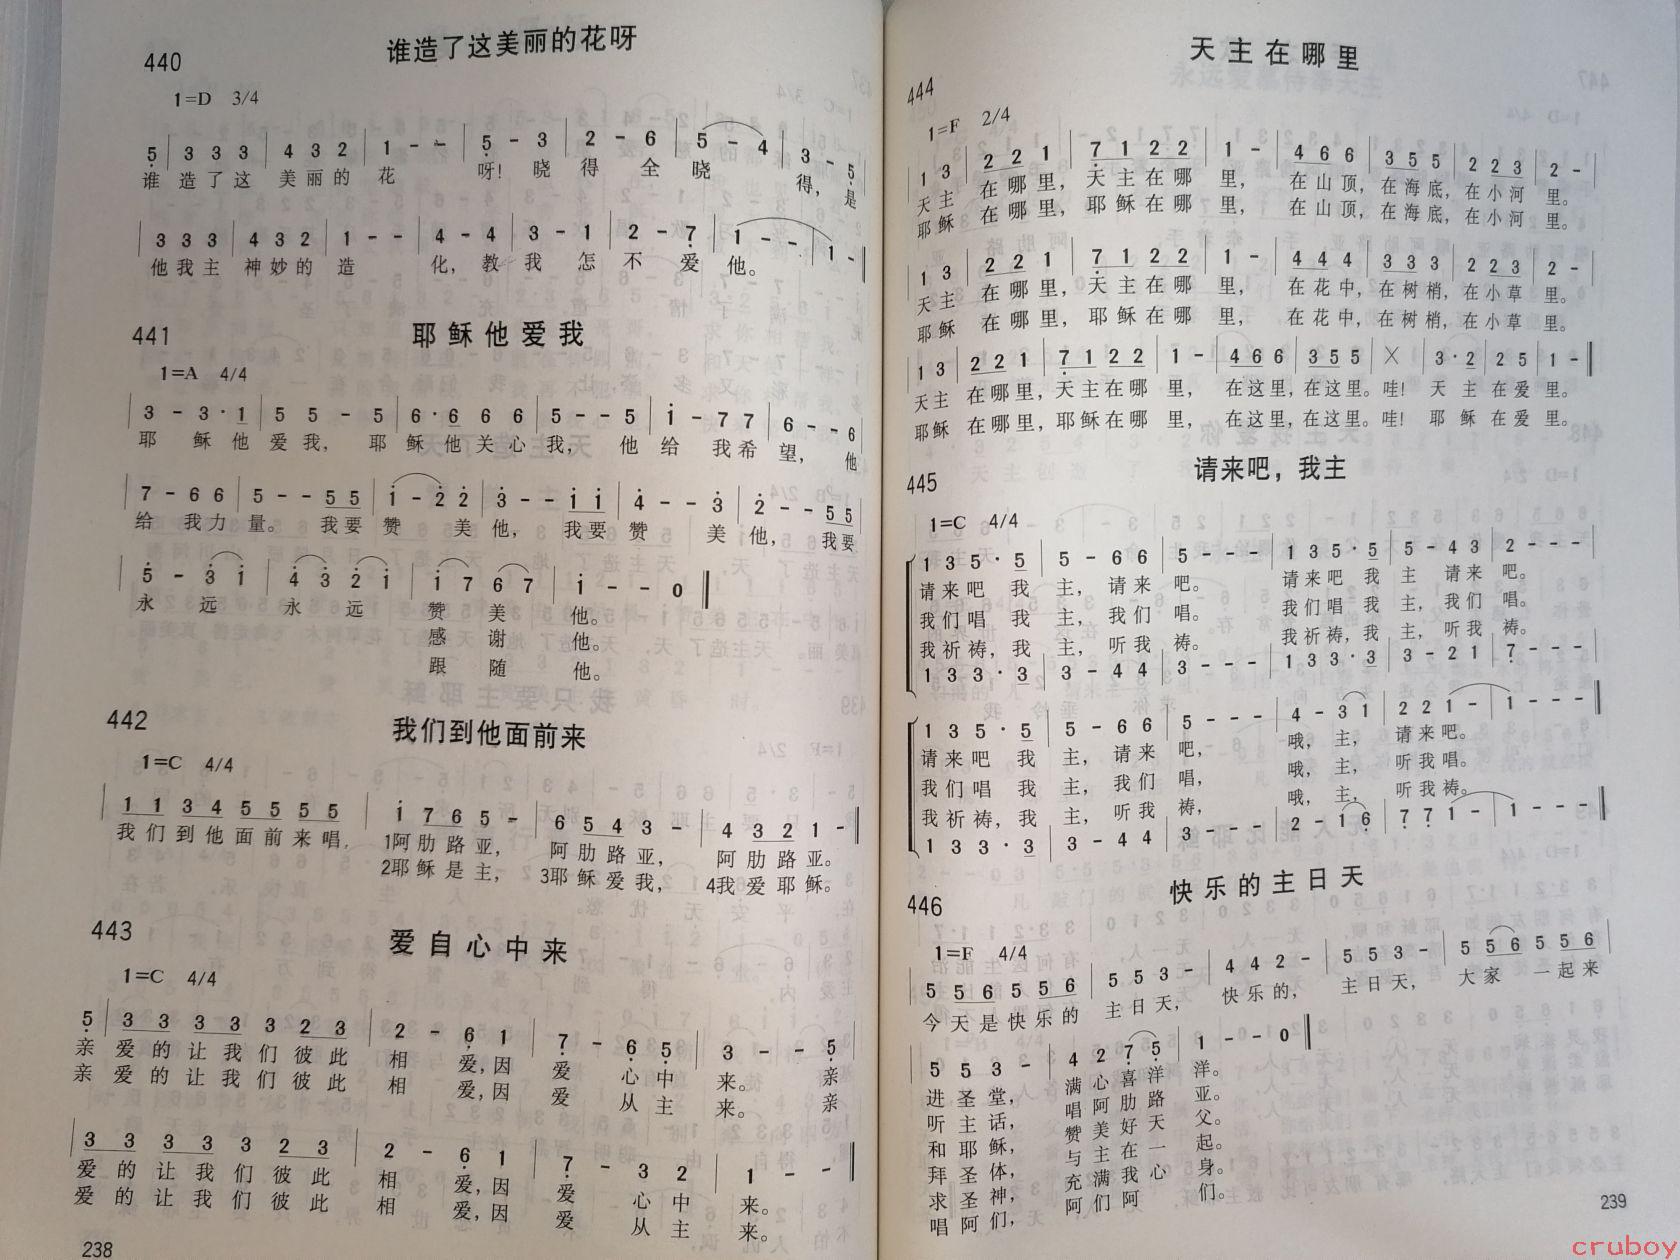 440 谁造了这美丽的花呀
1=D 3/4
5 | 3 3 3 | 4 3 2 | 1 - - | 5 - 3 | 2 - 6 | 5 - 4 | 3 - 5
谁 造了这 美丽的 花 呀! 晓 得 全 晓 得, 是
| 3 3 3 | 4 3 2 | 1 - - | 4 - 4 | 3 - 1 | 2 - 7 | 1 - - | 1 - ‖
他我主 神妙的 造 化, 教 我 怎 不 爱 他。
441 耶稣他爱我
1=A 4/4
| 3 - 3 · 1 | 5 5 - 5 | 6 · 6 6 6 | 5 - - 5 | i - 7 7 | 6 - - 6
耶 稣他 爱我, 耶 稣他关心 我, 他 给 我希 望, 他
| 7 - 6 6 | 5 - - 5 5 | i - 2 2 | 3 - - i i | 4 - - 3 | 2 - - 5 5
给 我力 量。 我要 赞 美 他, 我要 赞 美 他, 我要
| 5 - 3 i | 4 3 2 i | i 7 6 7 | i - - 0 ‖
永 远 永 远 赞 美 他。
感 谢 他。
跟 随 他。
442 我们到他面前来
1=C 4/4
| 1 1 3 4 5 5 5 5 | i 7 6 5 - | 6 5 4 3 - | 4 3 2 1 - ‖
我们到他面前来唱, 1阿肋路亚, 阿肋路亚, 阿肋路亚。
2耶稣是主, 3耶稣爱我, 4我爱耶稣。
443 爱自心中来
1=C 4/4
5 | 3 3 3 3 3 2 3 | 2 - 6 1 | 7 - 6 5 | 3 - - 5
亲 爱的让我们彼此 相 爱,因 爱 心中 来。 亲
亲 爱的让我们彼此 相 爱,因 爱 从主 来。 亲
| 3 3 3 3 3 2 3 | 2 - 6 1 | 7 - 3 2 | 1 - - ‖
爱的让我们彼此 相 爱,因 爱 心中 来。
爱的让我们彼此 相 爱,因 爱 从主 来。
238
444 天主在哪里
1=F 2/4
| 1 3 | 2 2 1 | 7 1 2 2 | 1 - | 4 6 6 | 3 5 5 | 2 2 3 | 2 - |
天主 在哪里, 天主在哪 里, 在山顶, 在海底, 在小河 里。
耶稣 在哪里, 耶稣在哪 里, 在山顶, 在海底, 在小河 里。
| 1 3 | 2 2 1 | 7 1 2 2 | 1 - | 4 4 4 | 3 3 3 | 2 2 3 | 2 - |
天主 在哪里, 天主在哪 里, 在花中, 在树梢, 在小草 里。
耶稣 在哪里, 耶稣在哪 里, 在花中, 在树梢, 在小草 里。
| 1 3 | 2 2 1 | 7 1 2 2 | 1 - | 4 6 6 | 3 5 5 | X | 3 · 2 | 2 5 | 1 - ‖
天主 在哪里, 天主在哪 里, 在这里, 在这里。哇! 天 主 在爱 里。
耶稣 在哪里, 耶稣在哪 里, 在这里, 在这里。哇! 耶 稣 在爱 里。
445 请来吧,我主
1=C 4/4
| 1 3 5 · 5 | 5 - 6 6 | 5 - - - | 1 3 5 · 5 | 5 - 4 3 | 2 - - - |
请来吧 我 主, 请来 吧。 请来吧 我 主 请来 吧。
我们唱 我 主, 我们 唱。 我们唱 我 主, 我们 唱。
我祈祷, 我 主, 听我 祷。 我祈祷, 我 主, 听我 祷。
| 1 3 3 · 3 | 3 - 4 4 | 3 - - - | 1 3 3 · 3 | 3 - 2 1 | 7 - - - |
| 1 3 5 · 5 | 5 - 6 6 | 5 - - - | 4 - 3 1 | 2 2 1 - | 1 - - - ‖
请来吧 我 主, 请来 吧, 哦, 主, 请来吧。
我们唱 我 主, 我们 唱, 哦, 主, 听我唱。
我祈祷, 我 主, 听我 祷, 哦, 主, 听我祷。
| 1 3 3 · 3 | 3 - 4 4 | 3 - - - | 2 - 1 6 | 7 7 1 - | 1 - - - ‖
446 快乐的主日天
1=F 4/4
| 5 5 6 5 5 6 | 5 5 3 - | 4 4 2 - | 5 5 3 - | 5 5 6 5 5 6
今天是快乐的 主日天, 快乐的, 主日天, 大家 一起来
| 5 5 3 - | 4 2 7 5 | 1 - - 0 ‖
进圣堂, 满心喜洋 洋。
听主话, 唱阿肋路 亚。
和耶稣, 赞美好天 父。
拜圣体, 与主在一 起。
求圣神, 充满我心 身。
唱阿们, 阿们阿 们。
239
cruboy